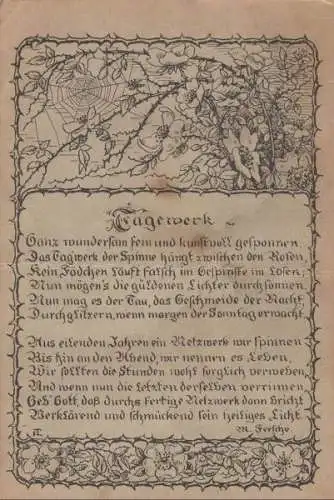 Tagewerk
Ganz wundersam fein und kunstvoll gesponnen
Das Tagwerk der Spinne hängt zwischen den Rosen,
Kein Fädchen läuft falsch im Gespinste im Losen;
Nun mögen's die güldenen Lichter durchsonnen
Nun mag es der Tau, das Geschmeide der Nacht
Durchglitzern, wenn morgen der Sonntag erwacht
Aus eilenden Jahren ein Netzwerk wir spinnen
Bis hin an den Abend, wir nennen es Leben,
Wir sollten die Stunden wohl sorglich verweben
Und wenn nun die Letzten derselben verrinnen
Geb' Gott, daß durchs fertige Netzwerk dann bricht
Verklärend und schmückend sein heiliges Licht
M. Feesche